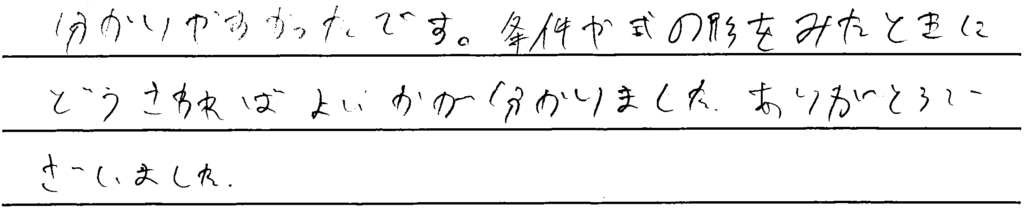 分かりやすかったです。条件や式の形をみたときに
どうすればよいかが分かりました。ありがとうご
ざいました。